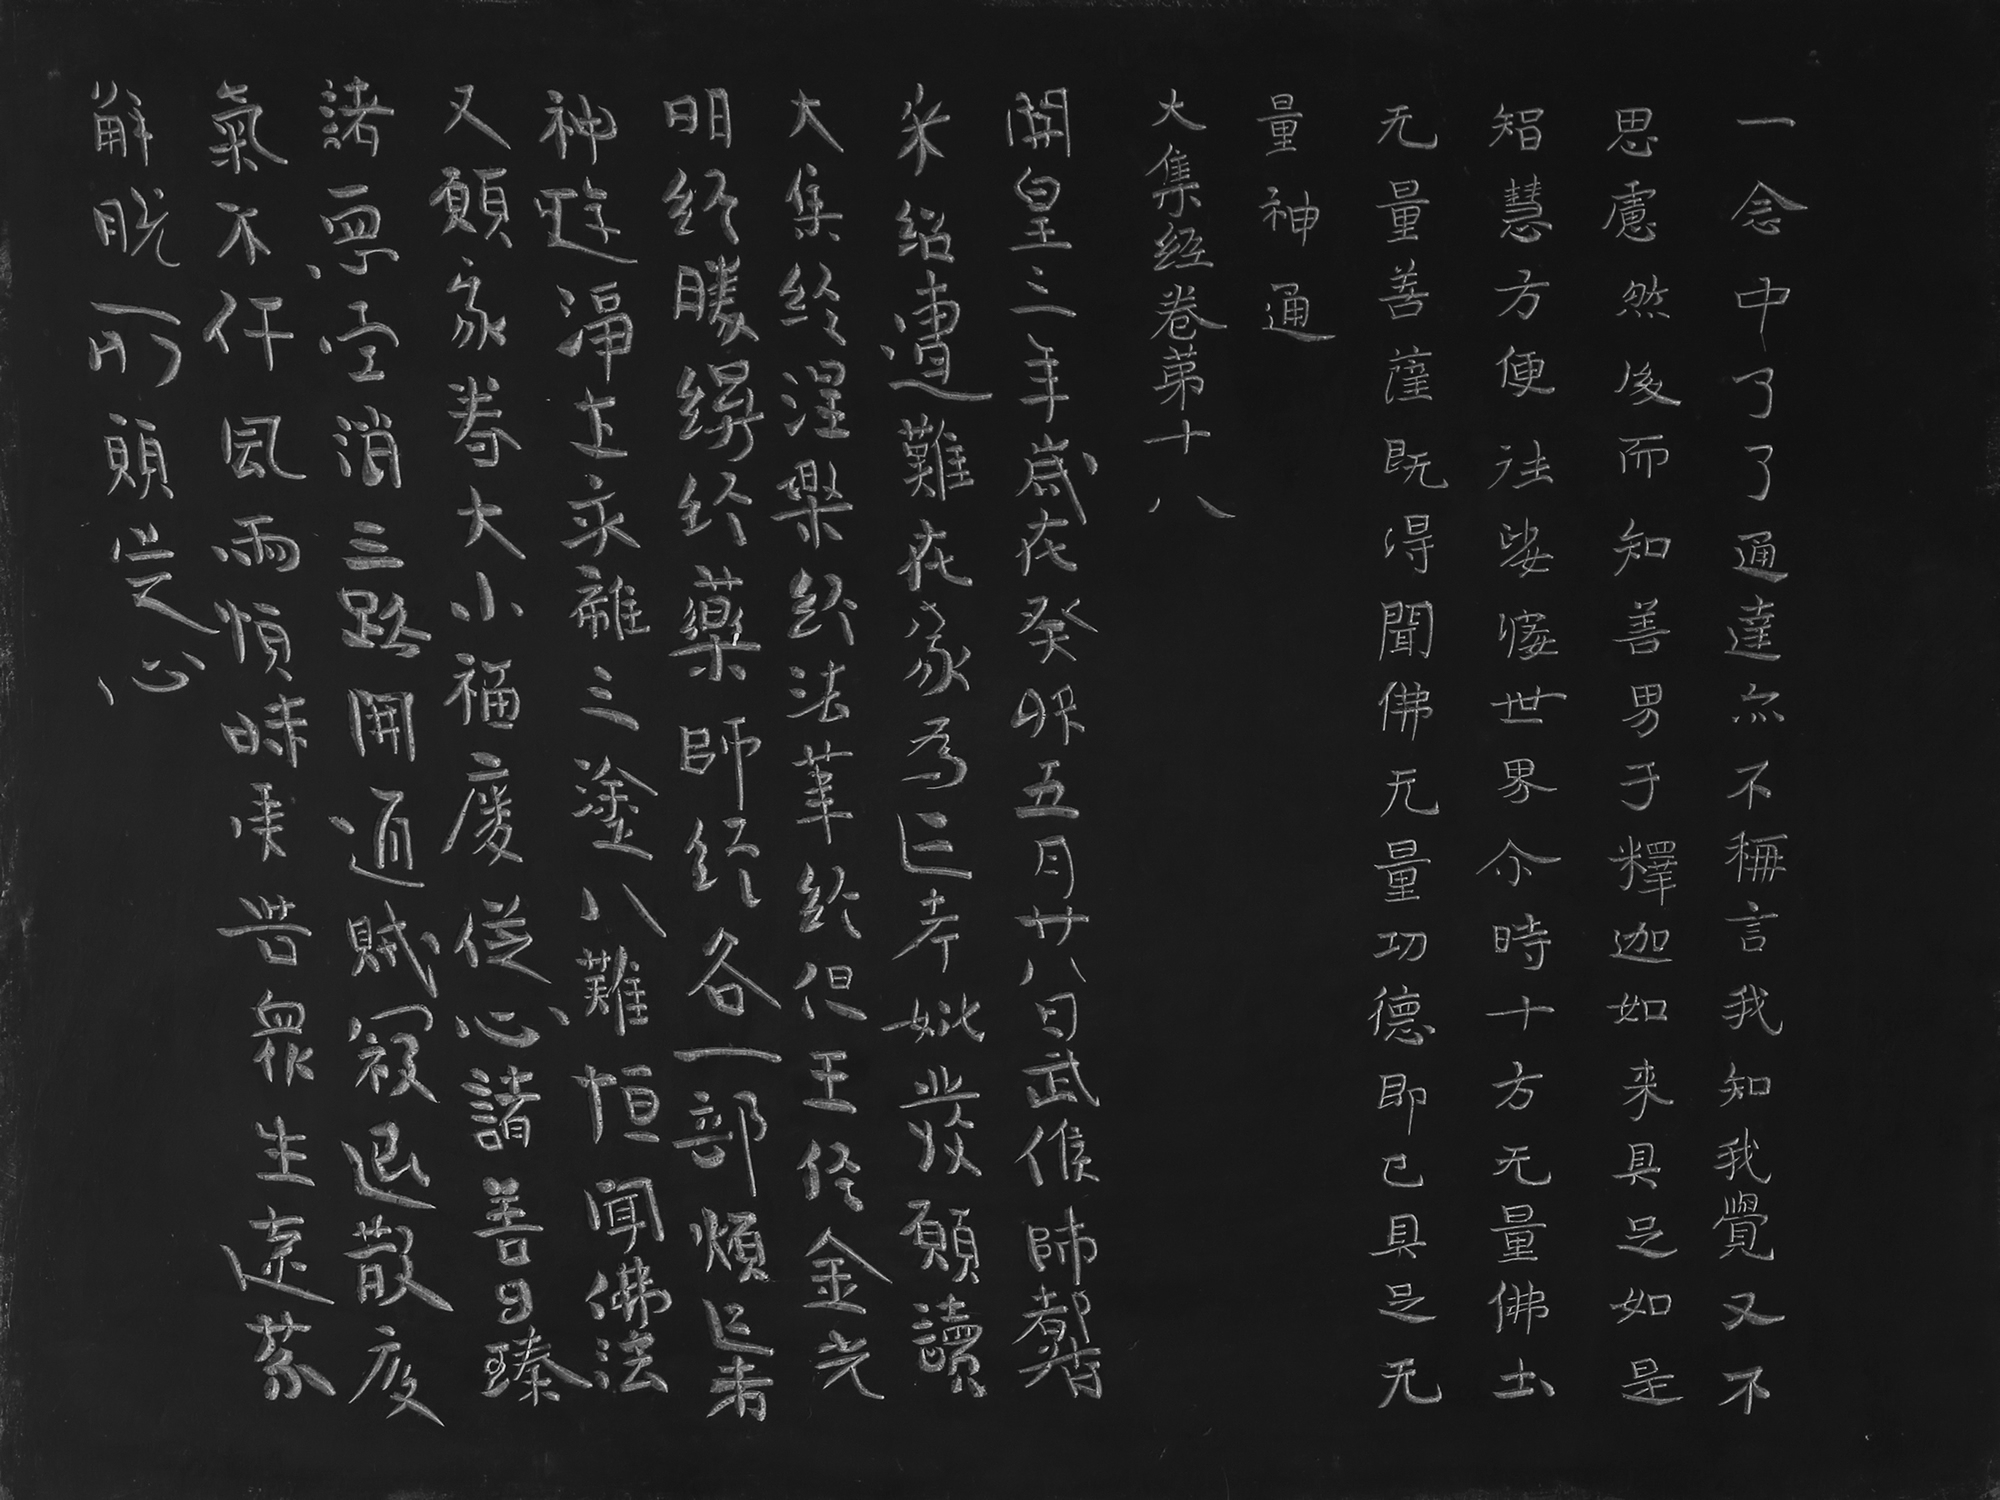 一念中了了通達亦不稱言我知我覺又不
思慮然後而知善男子釋迦如来具足如是
智慧方便往娑婆世界尒時十方无量佛土
无量善薩既得聞佛无量功德即已具足无
量神通
大集經卷第十八
開皇三年歲在癸卯五月廿八日武侯帥都督
宋紹遭難在家為亡考妣發願讀
大集經涅槃經法華經仁王經金光
明經勝鬘經藥師經各一部願亡者
神遊淨土永離三塗八難恒聞佛法
又願家眷大小福慶從心諸善日臻
諸惡雲消三路開通賊寇退散疫
氣不行風雨順時受苦眾生速蒙
解脫所願從心